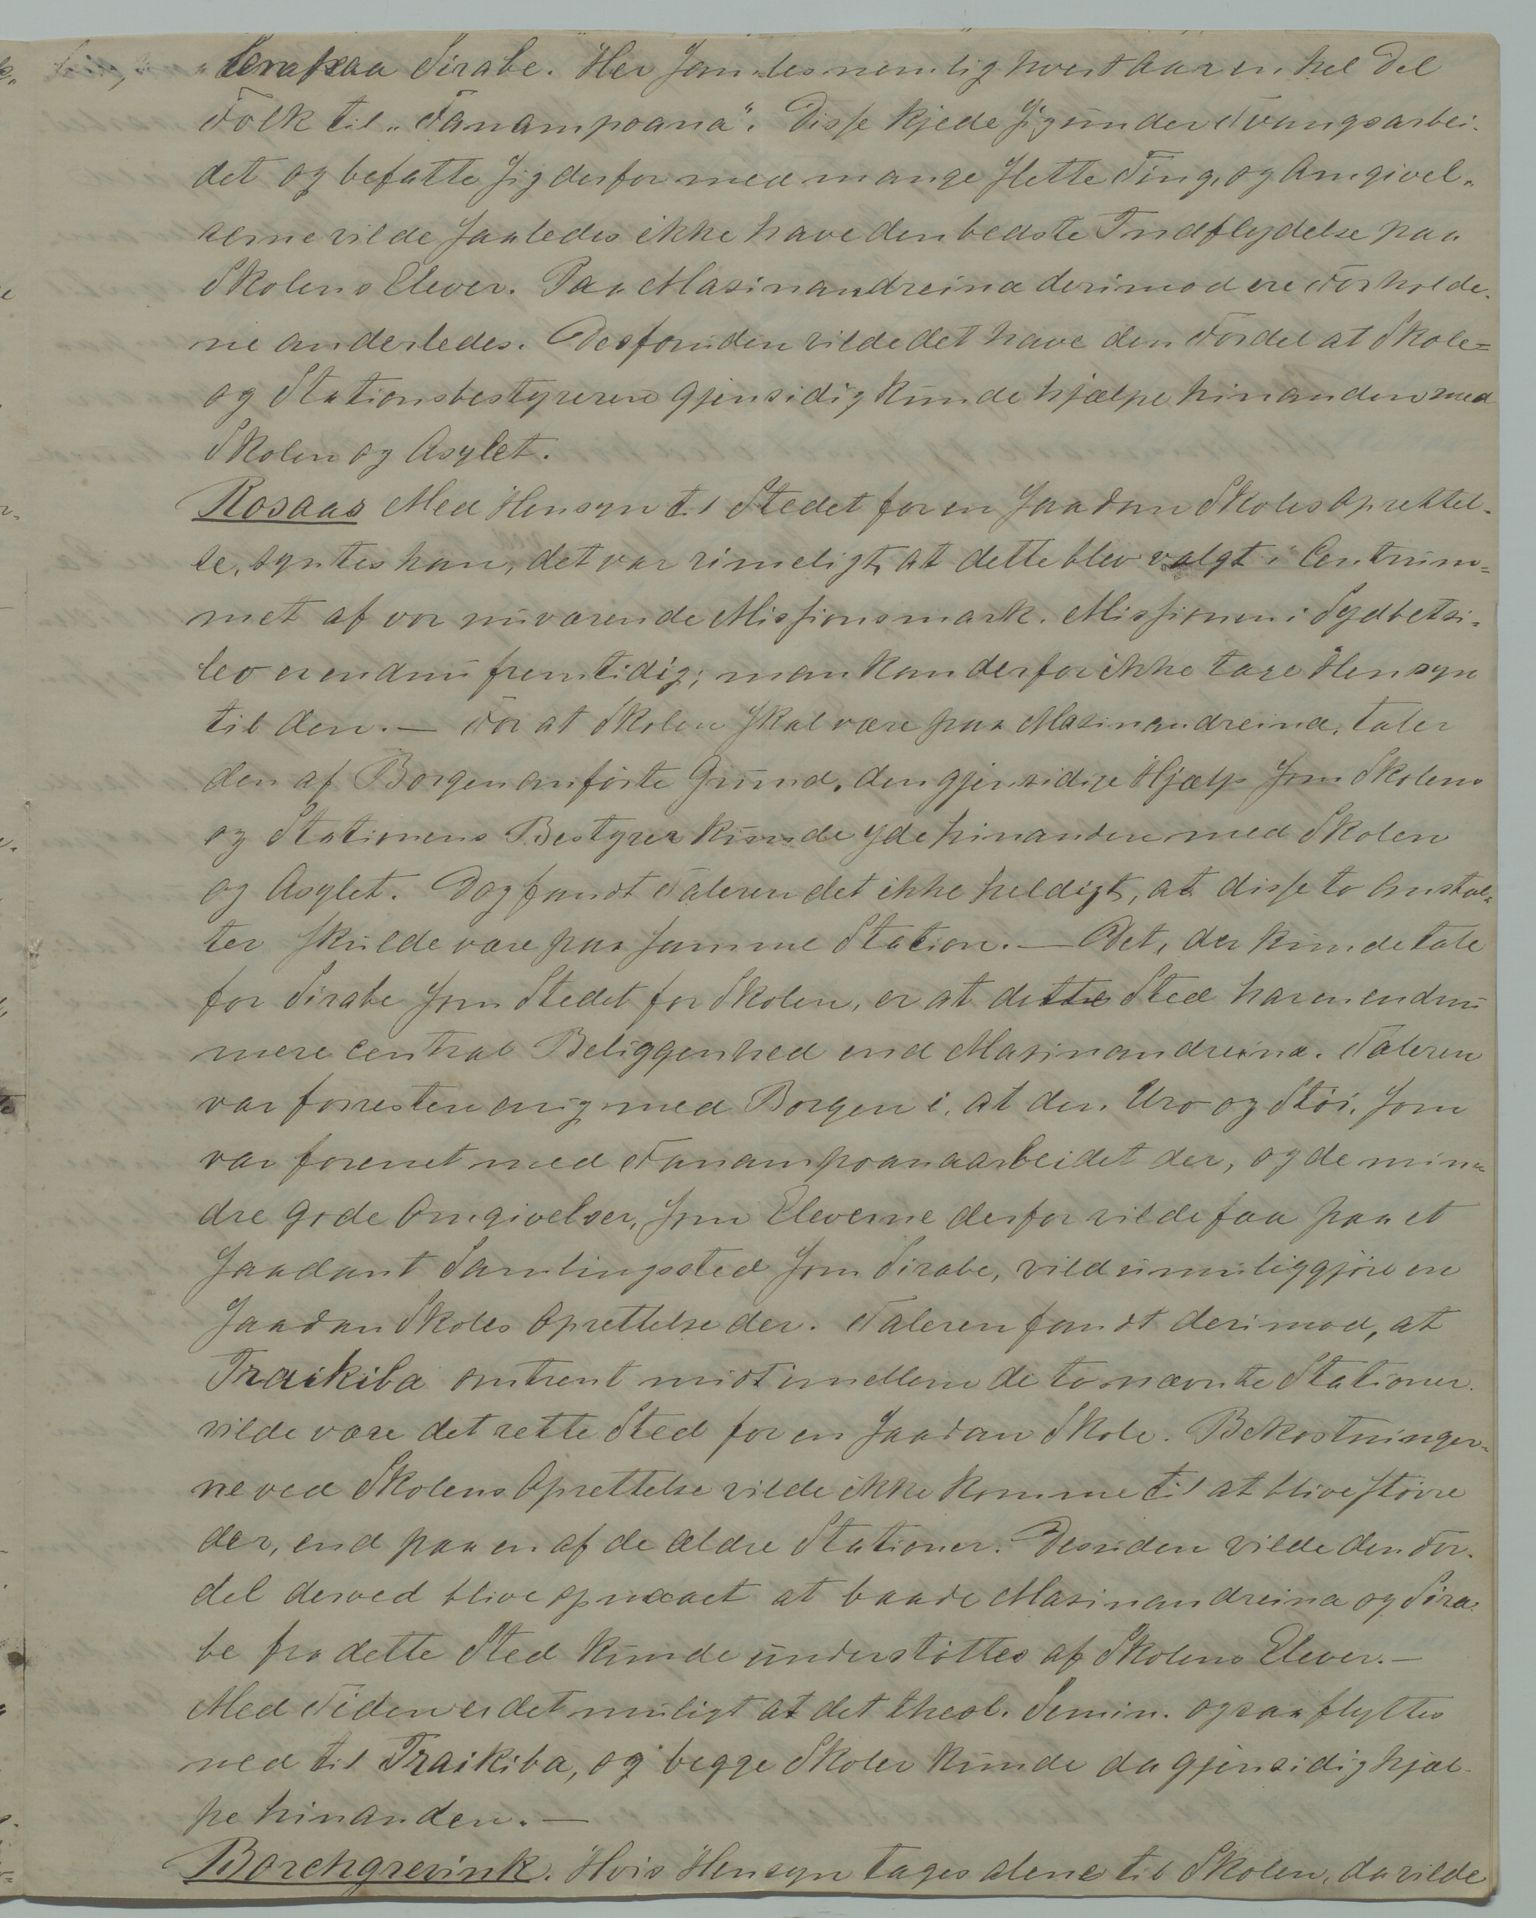 lem paa Sirabe. Her samles nemlig hvert Aar en hel Del
Folk til „Fanampoana". Disse kjede sig under Tvangsarbei-
det og befatte sig derfor med mange slette Ting, og Omgivel-
serne vilde saaledes ikke have den bedste Indflydelse paa
Skolens Elever. Paa Masinandreina derimod ere Forholde-
ne anderledes. Desforuden vilde det have den Fordel at Skole=
og Stationsbestyreren gjensidig kunde hjælpe hinanden med
Skolen og Asylet.
Rosaas Med Hensyn til Stedet for en saadan Skoles Oprettel-
se, syntes han, det var rimeligt, at dette blev valgt i Centrum=
met af vor nuværende Missionsmark. Missionen i Sydbetsi-
leo er endnu fremtidig; man kan derfor ikke tage Hensyn
til den. — For at Skolen skal være paa Masinandreina, taler
den af Borgen anførte Grund, den gjensidige Hjælp som Skolens
og Stationens Bestyrer kunde yde hinanden med Skolen
og Asylet. Dog fandt Taleren det ikke heldigt, at disse to Anstal-
ter skulde være paa samme Station. — Det, der kunde tale
for Sirabe som Stedet for Skolen, er at dette Sted har en endnu
mere central Beliggenhed end Masinandreina. Taleren
var forresten enig med Borgen i, at den Uro og Støi, som
var forenet med Fanampoanaarbeidet der, og de min-
dre gode Omgivelser, som Eleverne derfor vilde faa paa et
saadant Samlingssted som Sirabe, vilde umuliggjøre en
saadan Skoles Oprettelse der. Taleren fandt derimod, at
Traikiba omtrent midt imellem de to nævnte Stationer
vilde være det rette Sted for en saadan Skole. Bekostninger-
ne ved Skolens Oprettelse vilde ikke komme til at blive større
der, end paa en af de ældre Stationer. Desuden vilde den For-
del derved blive opnaaet at baade Masinandreina og Sira-
be fra dette Sted kunde understøttes af Skolens Elever. —
Med Tiden er det muligt at det theol. Semin. ogsaa flyttes
ned til Traikiba, og begge Skoler kunde da gjensidig hjæl-
pe hinanden. —
Borchgrevink. Hvis Hensyn tages alene til Skolen, da vilde